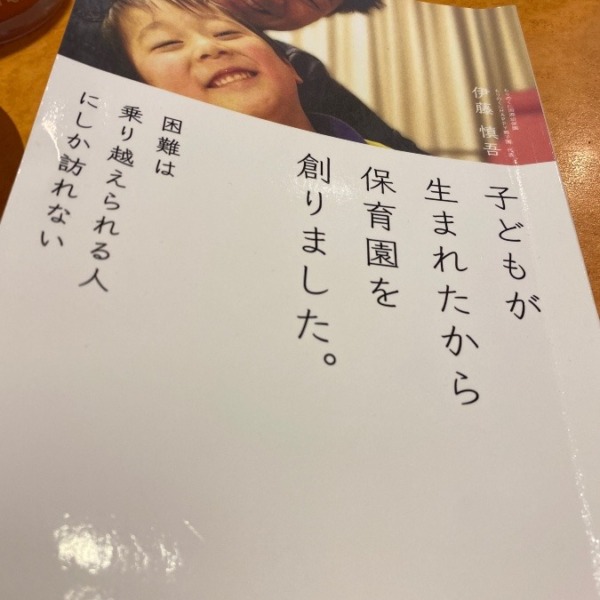 子どもが
生まれたから
保育園を
創りました。
困難は
乗り越えられる人
にしか訪れない
伊藤 慎吾